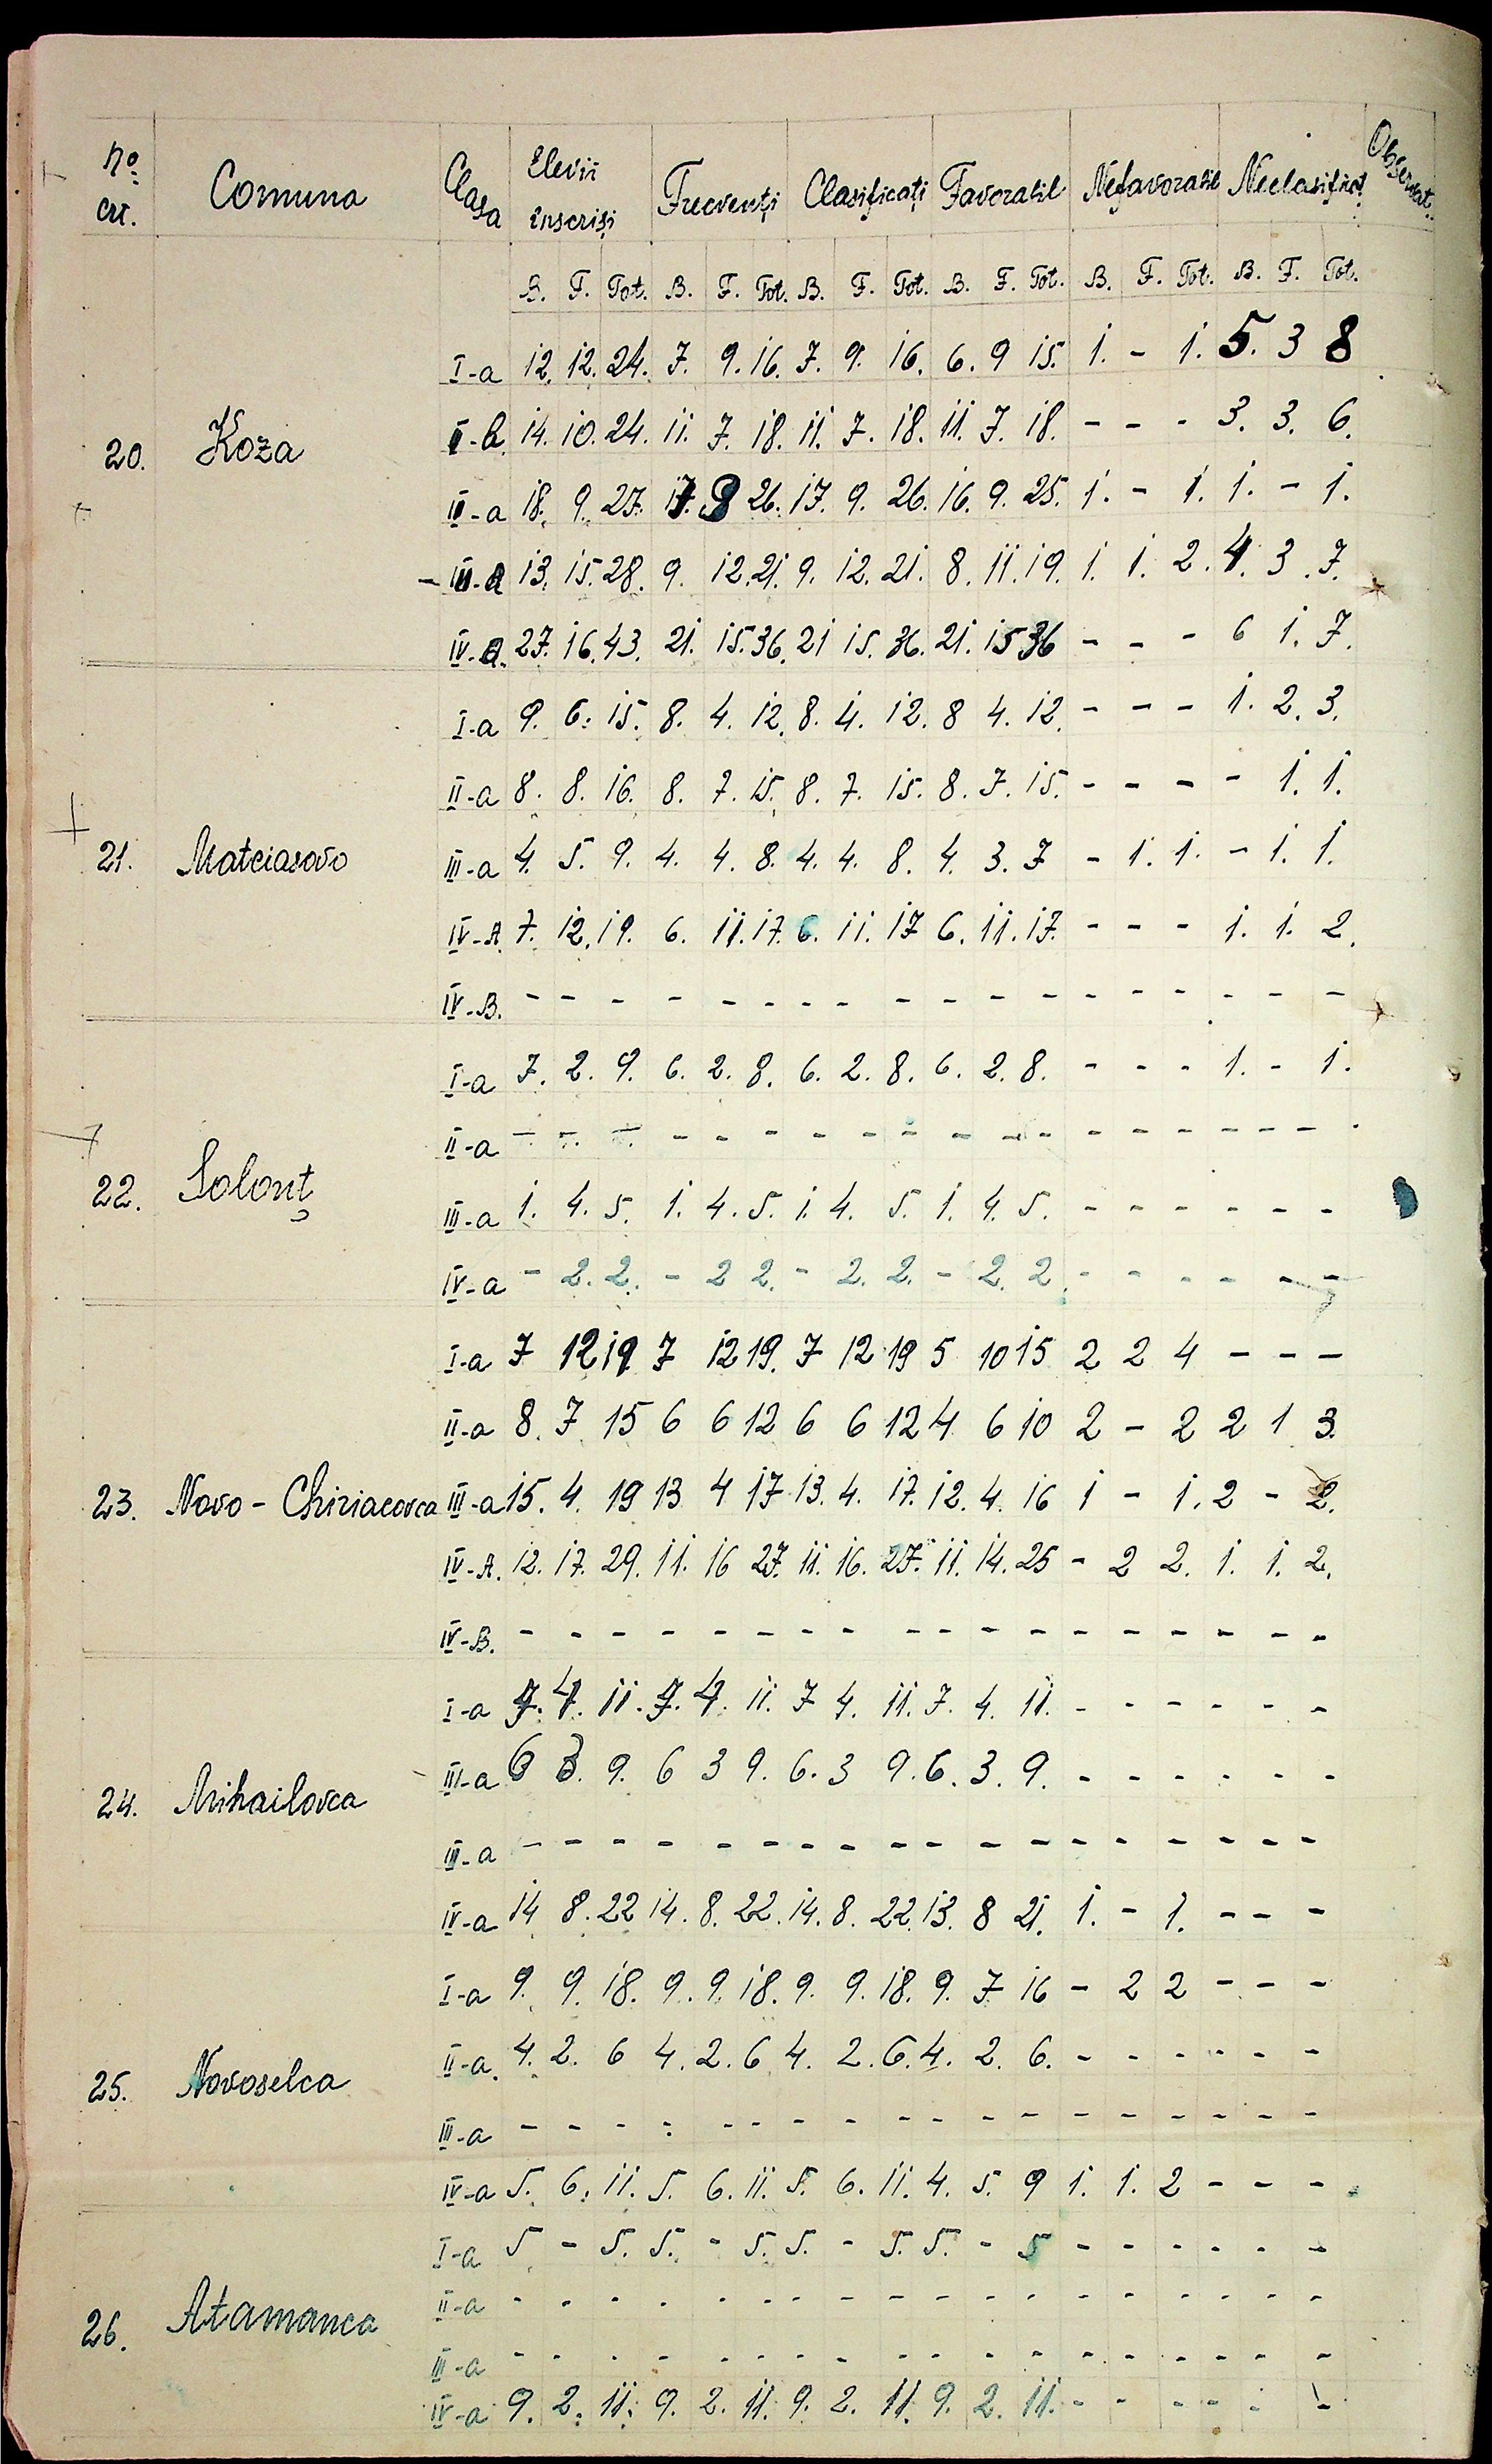 No. crt. Comuna Clasa Elevii înscriși Frecvenți Clasificați Favorabil Nefavorabil Neclasificat Observat.
B. F. Tot. B. F. Tot. B. F. Tot. B. F. Tot. B. F. Tot. B. F. Tot.
I-a 12. 12. 24. 7. 9. 16. 7. 9. 16. 6. 9 15. 1. - 1. 5. 3 8
20. Koza I-b. 14. 10. 24. 11. 7. 18. 11. 7. 18. 11. 7. 18. - - - 3. 3. 6.
II-a 18. 9. 27. 17. 9 26. 17. 9. 26. 16. 9. 25. 1. - 1. 1. - 1.
III-a 13. 15. 28. 9. 12. 21. 9. 12. 21. 8. 11. 19. 1. 1. 2. 4. 3. 7.
IV-a. 27. 16. 43. 21. 15. 36. 21 15. 36. 21. 15 36 - - - 6 1. 7.
I-a 9. 6. 15. 8. 4. 12. 8. 4. 12. 8 4. 12. - - - 1. 2. 3.
II-a 8. 8. 16. 8. 7. 15. 8. 7. 15. 8. 7. 15. - - - - 1. 1.
21. Mateiasovo III-a 4. 5. 9. 4. 4. 8. 4. 4. 8. 4. 3. 7 - 1. 1. - 1. 1.
IV-A. 7. 12. 19. 6. 11. 17. 6. 11. 17 6. 11. 17. - - - 1. 1. 2.
IV-B. - - - - - - - - - - - - - - - - - -
I-a 7. 2. 9. 6. 2. 8. 6. 2. 8. 6. 2. 8. - - - 1. - 1.
II-a - - - - - - - - - - - - - - - - - -
22. Solonț III-a 1. 4. 5. 1. 4. 5. 1. 4. 5. 1. 4. 5. - - - - - -
IV-a - 2. 2. - 2 2. - 2. 2. - 2. 2. - - - - - -
I-a 7 12 19 7 12 19. 7 12 19 5 10 15 2 2 4 - - -
II-a 8. 7 15 6 6 12 6 6 12 4 6 10 2 - 2 2 1 3.
23. Novo - Chiriacovca III-a 15. 4. 19 13 4 17 13. 4. 17. 12. 4. 16 1 - 1. 2 - 2.
IV-A. 12. 17. 29. 11. 16 27. 11. 16. 27. 11. 14. 25 - 2 2. 1. 1. 2.
IV-B. - - - - - - - - - - - - - - - - - -
I-a 7. 4. 11. 7. 4. 11. 7 4. 11. 7. 4. 11. - - - - - -
III-a 6 3. 9. 6 3 9. 6. 3 9. 6. 3. 9. - - - - - -
24. Mihailovca
III-a - - - - - - - - - - - - - - - - - -
IV-a 14 8. 22 14. 8. 22. 14. 8. 22. 13. 8 21. 1. - 1. - - -
I-a 9. 9. 18. 9. 9. 18. 9. 9. 18. 9. 7 16 - 2 2 - - -
II-a. 4. 2. 6 4. 2. 6 4. 2. 6. 4. 2. 6. - - - - - -
25. Novoselca
III-a - - - - - - - - - - - - - - - - - -
IV-a 5. 6. 11. 5. 6. 11. 5. 6. 11. 4. 5. 9 1. 1. 2 - - -
I-a 5 - 5. 5. - 5. 5. - 5. 5. - 5 - - - - - -
II-a - - - - - - - - - - - - - - - - - -
26. Atamanca
III-a - - - - - - - - - - - - - - - - - -
IV-a 9. 2. 11. 9. 2. 11. 9. 2. 11. 9. 2. 11. - - - - - -